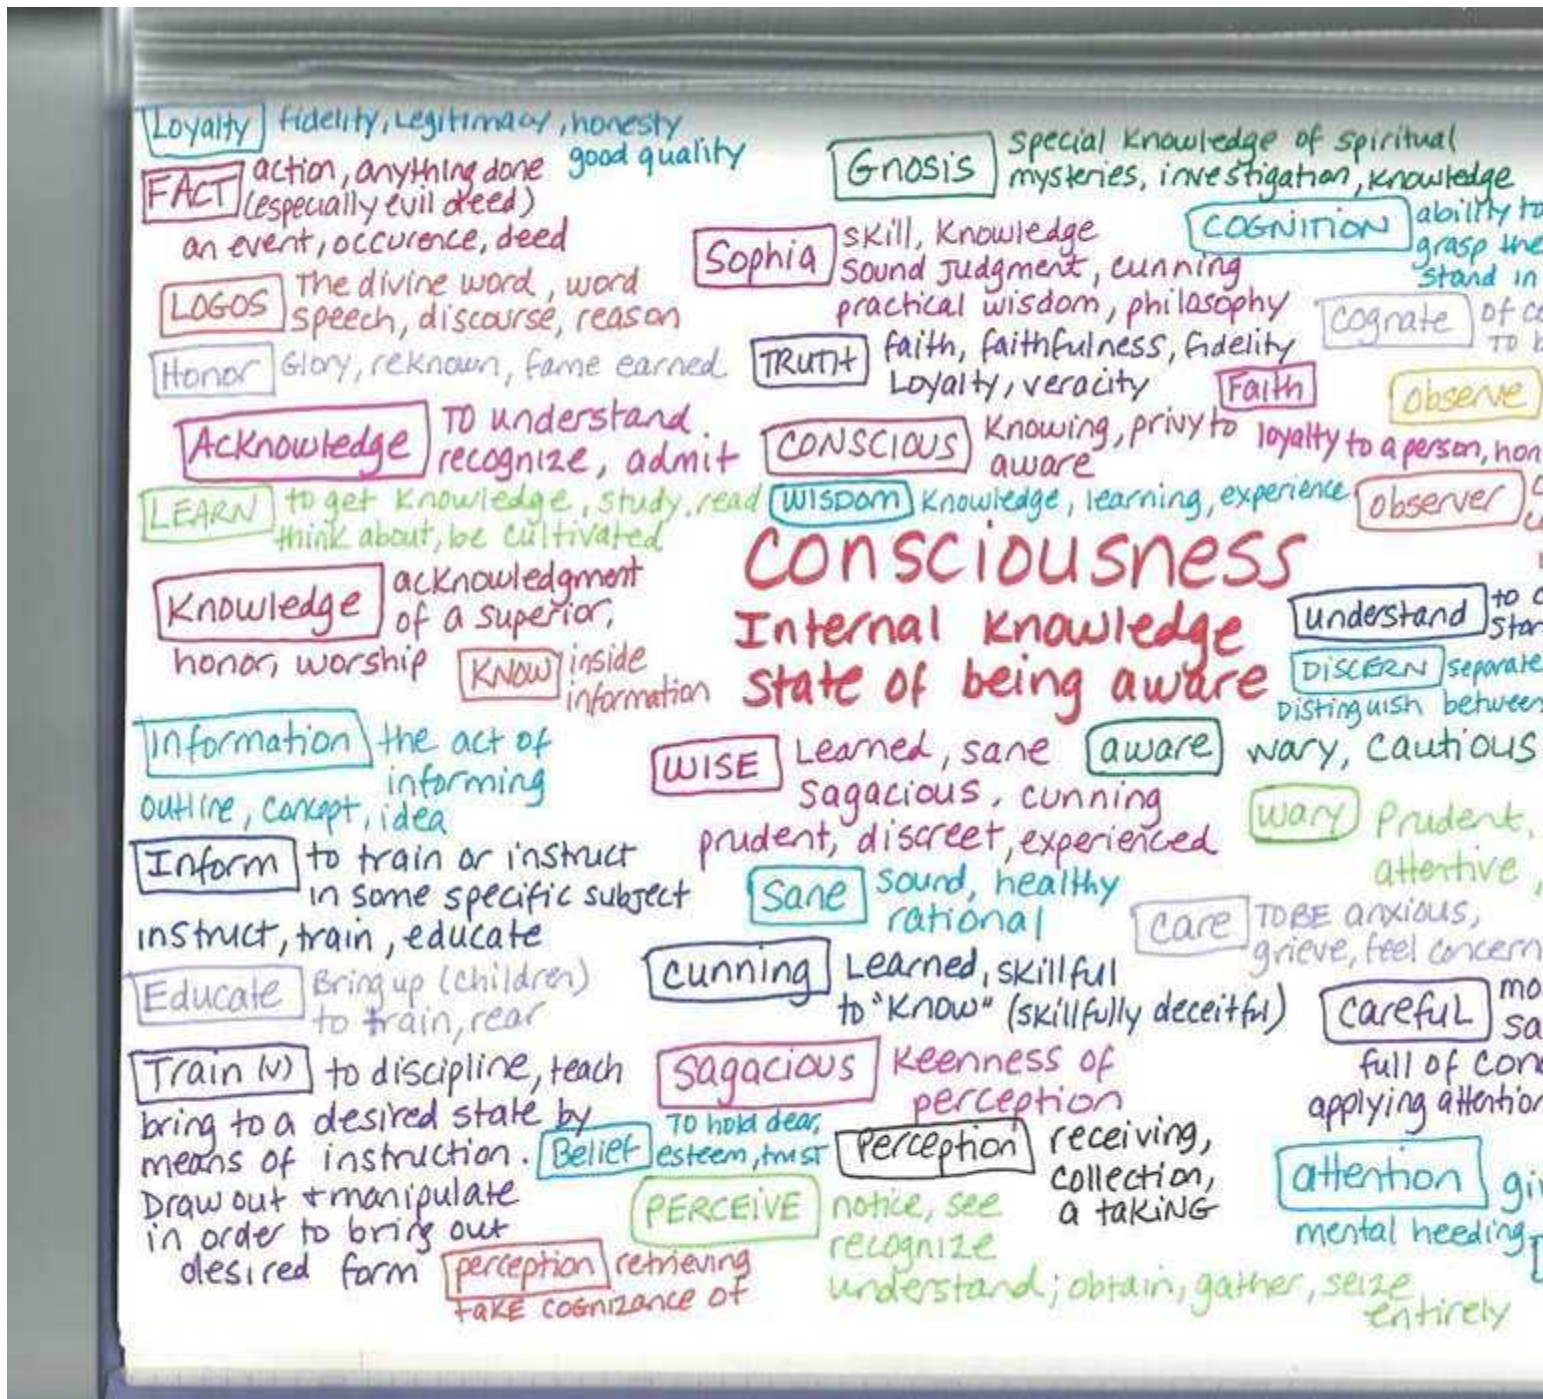 Loyalty fidelity, Legitimacy, honesty
good quality
FACT action, anything done
(especially evil deed)
an event, occurence, deed
LOGOS The divine word, word
speech, discourse, reason
Honor Glory, reknown, fame earned
Acknowledge TO understand
recognize, admit
LEARN to get knowledge, study, read
think about, be cultivated
Knowledge acknowledgment
of a superior,
honor, worship
KNOW inside
information
Information the act of
informing
outline, concept, idea
Inform to train or instruct
in some specific subject
instruct, train, educate
Educate Bring up (children)
to train, rear
Train (v) to discipline, teach
bring to a desired state by
means of instruction.
Draw out + manipulate
in order to bring out
desired form
Belief TO hold dear,
esteem, trust
perception retrieving
take cognizance of
Gnosis special knowledge of spiritual
mysteries, investigation, knowledge
Sophia skill, knowledge
sound judgment, cunning
practical wisdom, philosophy
COGNITION ability to
grasp the
stand in
cognate of
TO
TRUTH faith, faithfulness, fidelity
Loyalty, veracity
Faith
loyalty to a person, hon
observe
CONSCIOUS knowing, privy to
aware
WISDOM knowledge, learning, experience
observer
Consciousness
Internal knowledge
state of being aware
understand to
DISCERN separate
Distinguish between
WISE Learned, sane
sagacious, cunning
prudent, discreet, experienced
aware wary, cautious
wary Prudent,
attentive,
Sane sound, healthy
rational
care TO BE anxious,
grieve, feel concern
cunning Learned, skillful
to "know" (skillfully deceitful)
careful
full of
applying attention
sagacious keenness of
perception
Perception receiving,
collection,
a taking
attention
mental heeding
PERCEIVE notice, see
recognize
understand; obtain, gather, seize
entirely